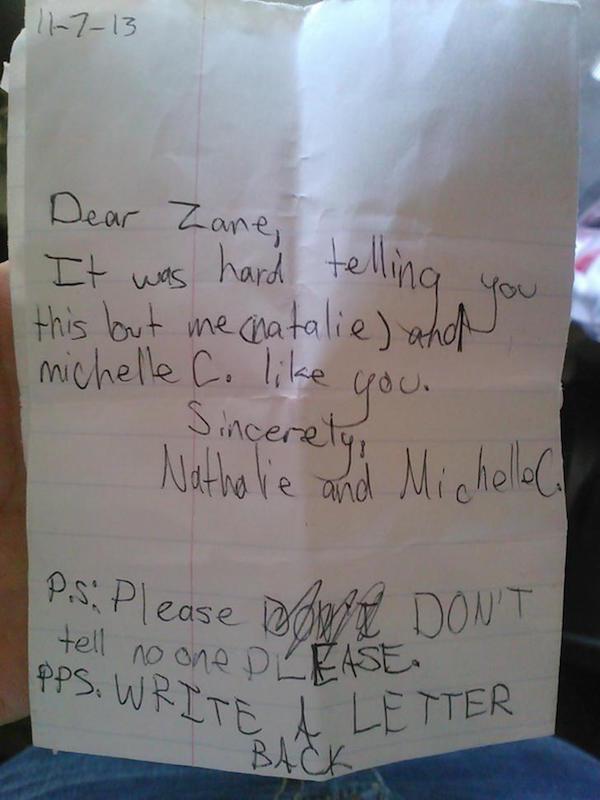 11-7-13
Dear Zane,
It was hard telling you
this but me(natalie) and
michelle C. like you.
Sincerety,
Nathalie and Michelle C.
P.S: Please DON'T DON'T
tell no one PLEASE.
PPS. WRITE A LETTER
BACK